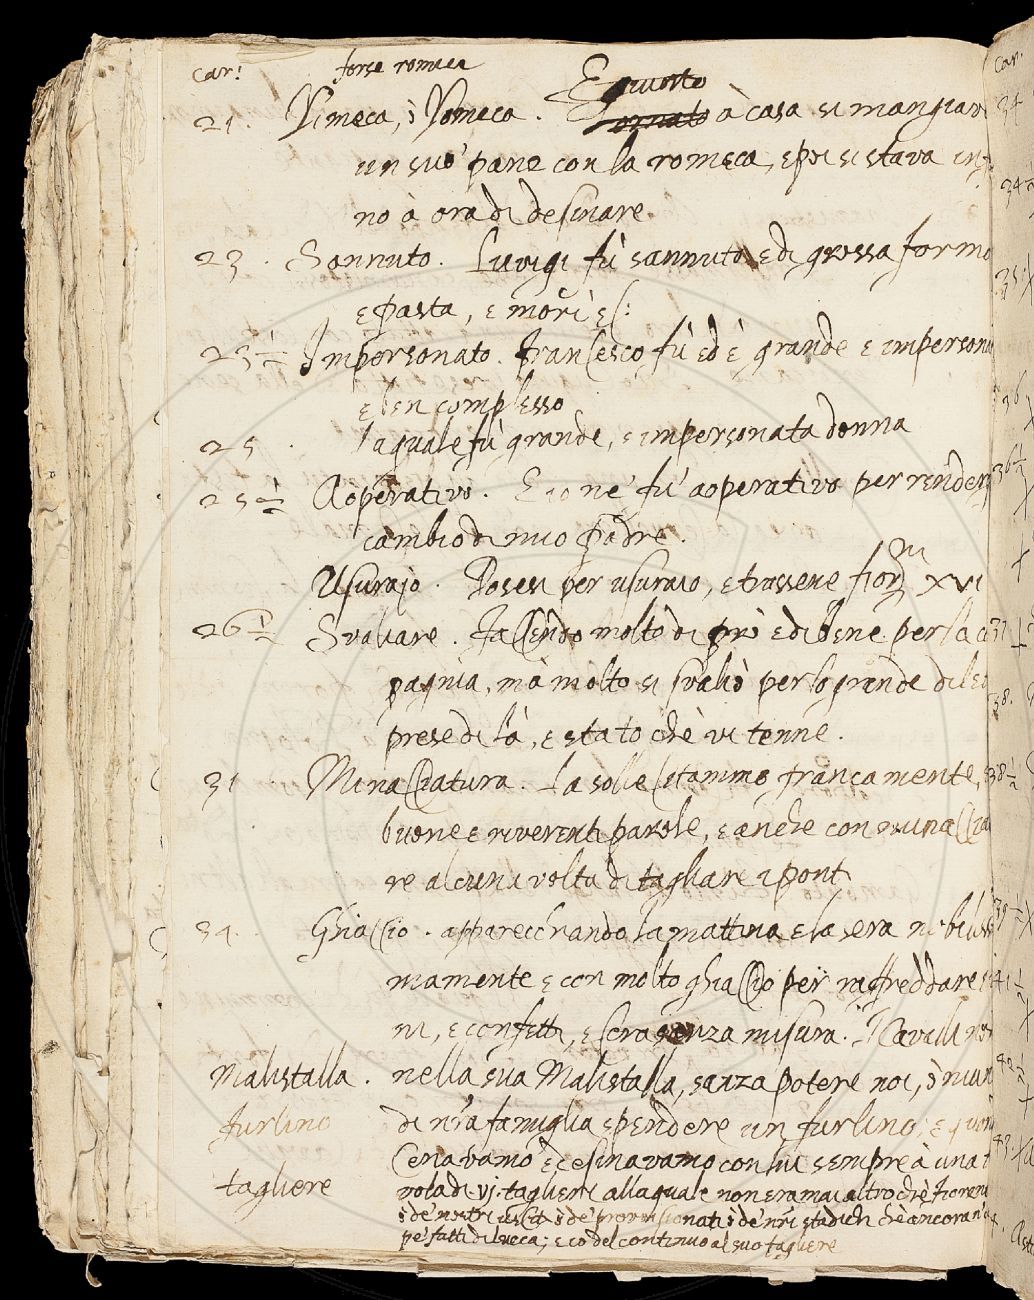 Car: forse romeca
21. Rimeca, ò Romeca. E giunto
tornato à casa si mangiava
un suo pane con la romeca, e poi si stava infi
no à ora di desinare
23. Sannuto. Luvigi fù sannuto, e di grossa forma
e pasta, e morì ec:
23 1/2 Impersonato. Francesco fù ed è grande e impersona
e ben complesso
25. la quale fù grande, e impersonata donna
25 1/2 Aoperativo. E io ne fù aoperativo per render
cambio di mio Padre.
Usurajo. Posesi per usuraio, e trassene fior. XVI m
26 1/2 Svaliare. Facendo molto di prò e di bene per la
pagnia, mà molto si svaliò per lo grande dilet
prese di là, e stato chè vi tenne.
31 Minacciatura. La sollecitammo francamente,
buone e riverenti parole, e anche con minaccia
re alcuna volta di tagliare i ponti
34. Ghiaccio. apparecchiando la mattina e la sera nobiliss
mamente e con molto ghiaccio per raffreddare i
ni, e confetti, e sera senza misura. I Cavalli nos
Malistalla. nella sua Malistalla, sanza potere noi, ò niun
furlino di nra famiglia spendere un furlino, e quivi
Cenavamo e desinavamo con lui sempre à una t
tagliere vola di .vj. taglieri alla quale non era mai altro chè fioren
ò de nostri usciti ò de provisionati ò de nri stadichi chè ancora n'a
pe fatti di Lucca; e io del continuo al suo tagliere